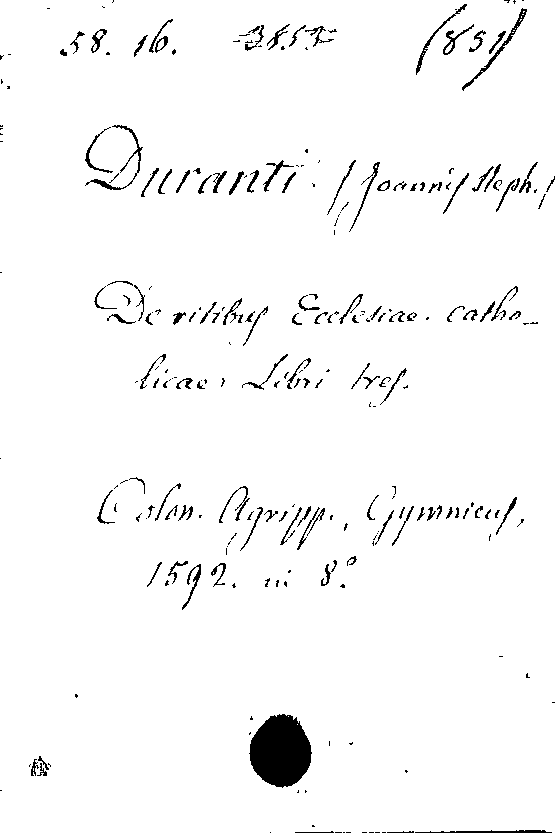 58. 16. 3853 (851)
Duranti. /Joannis Steph./
De ritibus Ecclesiae catho-
licae, Libri tres.
Colon. Agripp., Gymnicus,
1592. in 8.º